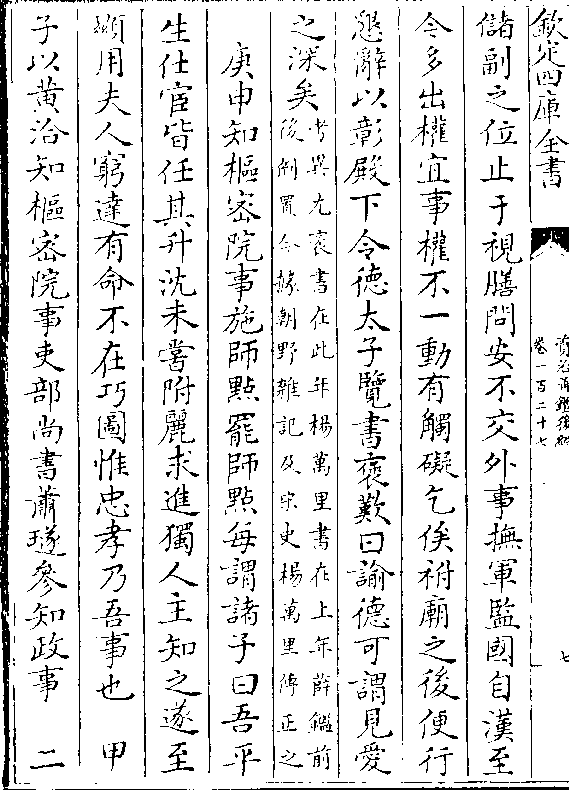 欽定四庫全書
卷一百二十七
七
儲副之位止于視膳問安不交外事撫軍監國自漢至
今多出權宜事權不一動有觸礙乞俟祔廟之後便行
懇辭以彰殿下令德太子覽書褒歎曰諭德可謂見愛
之深矣
考異尤袤書在此年楊萬里書在上年薛鑑前
後倒置今據朝野雜記及宋史楊萬里傳正之
庚申知樞密院事施師點罷師點每謂諸子曰吾平
生仕宦皆任其升沈未嘗附麗求進獨人主知之遂至
顯用夫人窮達有命不在巧圖惟忠孝乃吾事也　甲
子以黃洽知樞密院事吏部尚書蕭璲參知政事　二